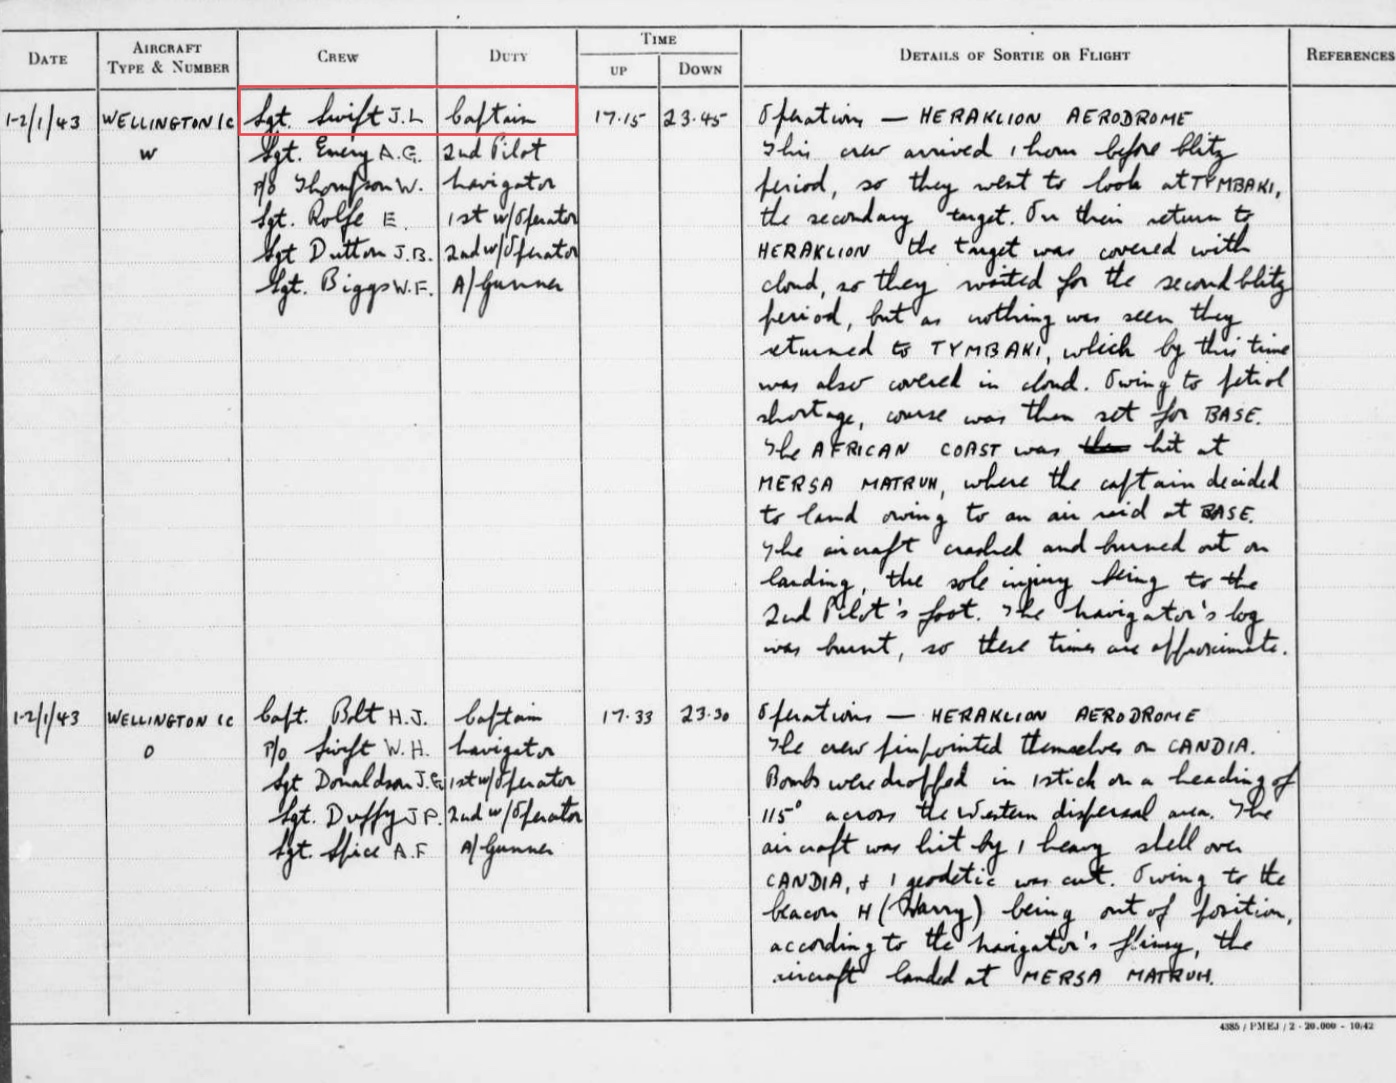 DATE AIRCRAFT TYPE & NUMBER CREW DUTY TIME UP DOWN DETAILS OF SORTIE OR FLIGHT REFERENCES
1-2/1/43 WELLINGTON 1c Sgt. Swift J.L Captain 17.15 23.45 Operations — HERAKLION AERODROME
W Sgt. Emery A.G. 2nd Pilot This crew arrived 1 hour before blitz
P/O Thompson W. Navigator period, so they went to look at TYMBAKI,
Sgt. Rolfe E. 1st w/operator the secondary target. On their return to
Sgt Dutton J.B. 2nd w/operator HERAKLION the target was covered with
Sgt. Biggs W.F. A/Gunner cloud, so they waited for the second blitz
period, but as nothing was seen they
returned to TYMBAKI, which by this time
was also covered in cloud. Owing to petrol
shortage, course was then set for BASE.
The AFRICAN COAST was hit at
MERSA MATRUH, where the captain decided
to land owing to an air raid at BASE.
The aircraft crashed and burned out on
landing, the sole injury being to the
2nd Pilot's foot. The navigator's log
was burnt, so these times are approximate.
1-2/1/43 WELLINGTON 1c Capt. Bolt H.J. Captain 17.33 23.30 Operations — HERAKLION AERODROME
O P/O Swift W.H. Navigator The crew pinpointed themselves on CANDIA.
Sgt Donaldson J.G 1st w/operator Bombs were dropped in 1 stick on a heading of
Sgt. Duffy J P. 2nd w/operator 115° across the Western dispersal area. The
Sgt. Spice A.F A/Gunner aircraft was hit by 1 heavy shell over
CANDIA, & 1 geodetic was cut. Owing to the
beacon H (Harry) being out of position,
according to the navigator's flimsy, the
aircraft landed at MERSA MATRUH.
4385 / PMEJ / 2 - 20.000 - 10/42